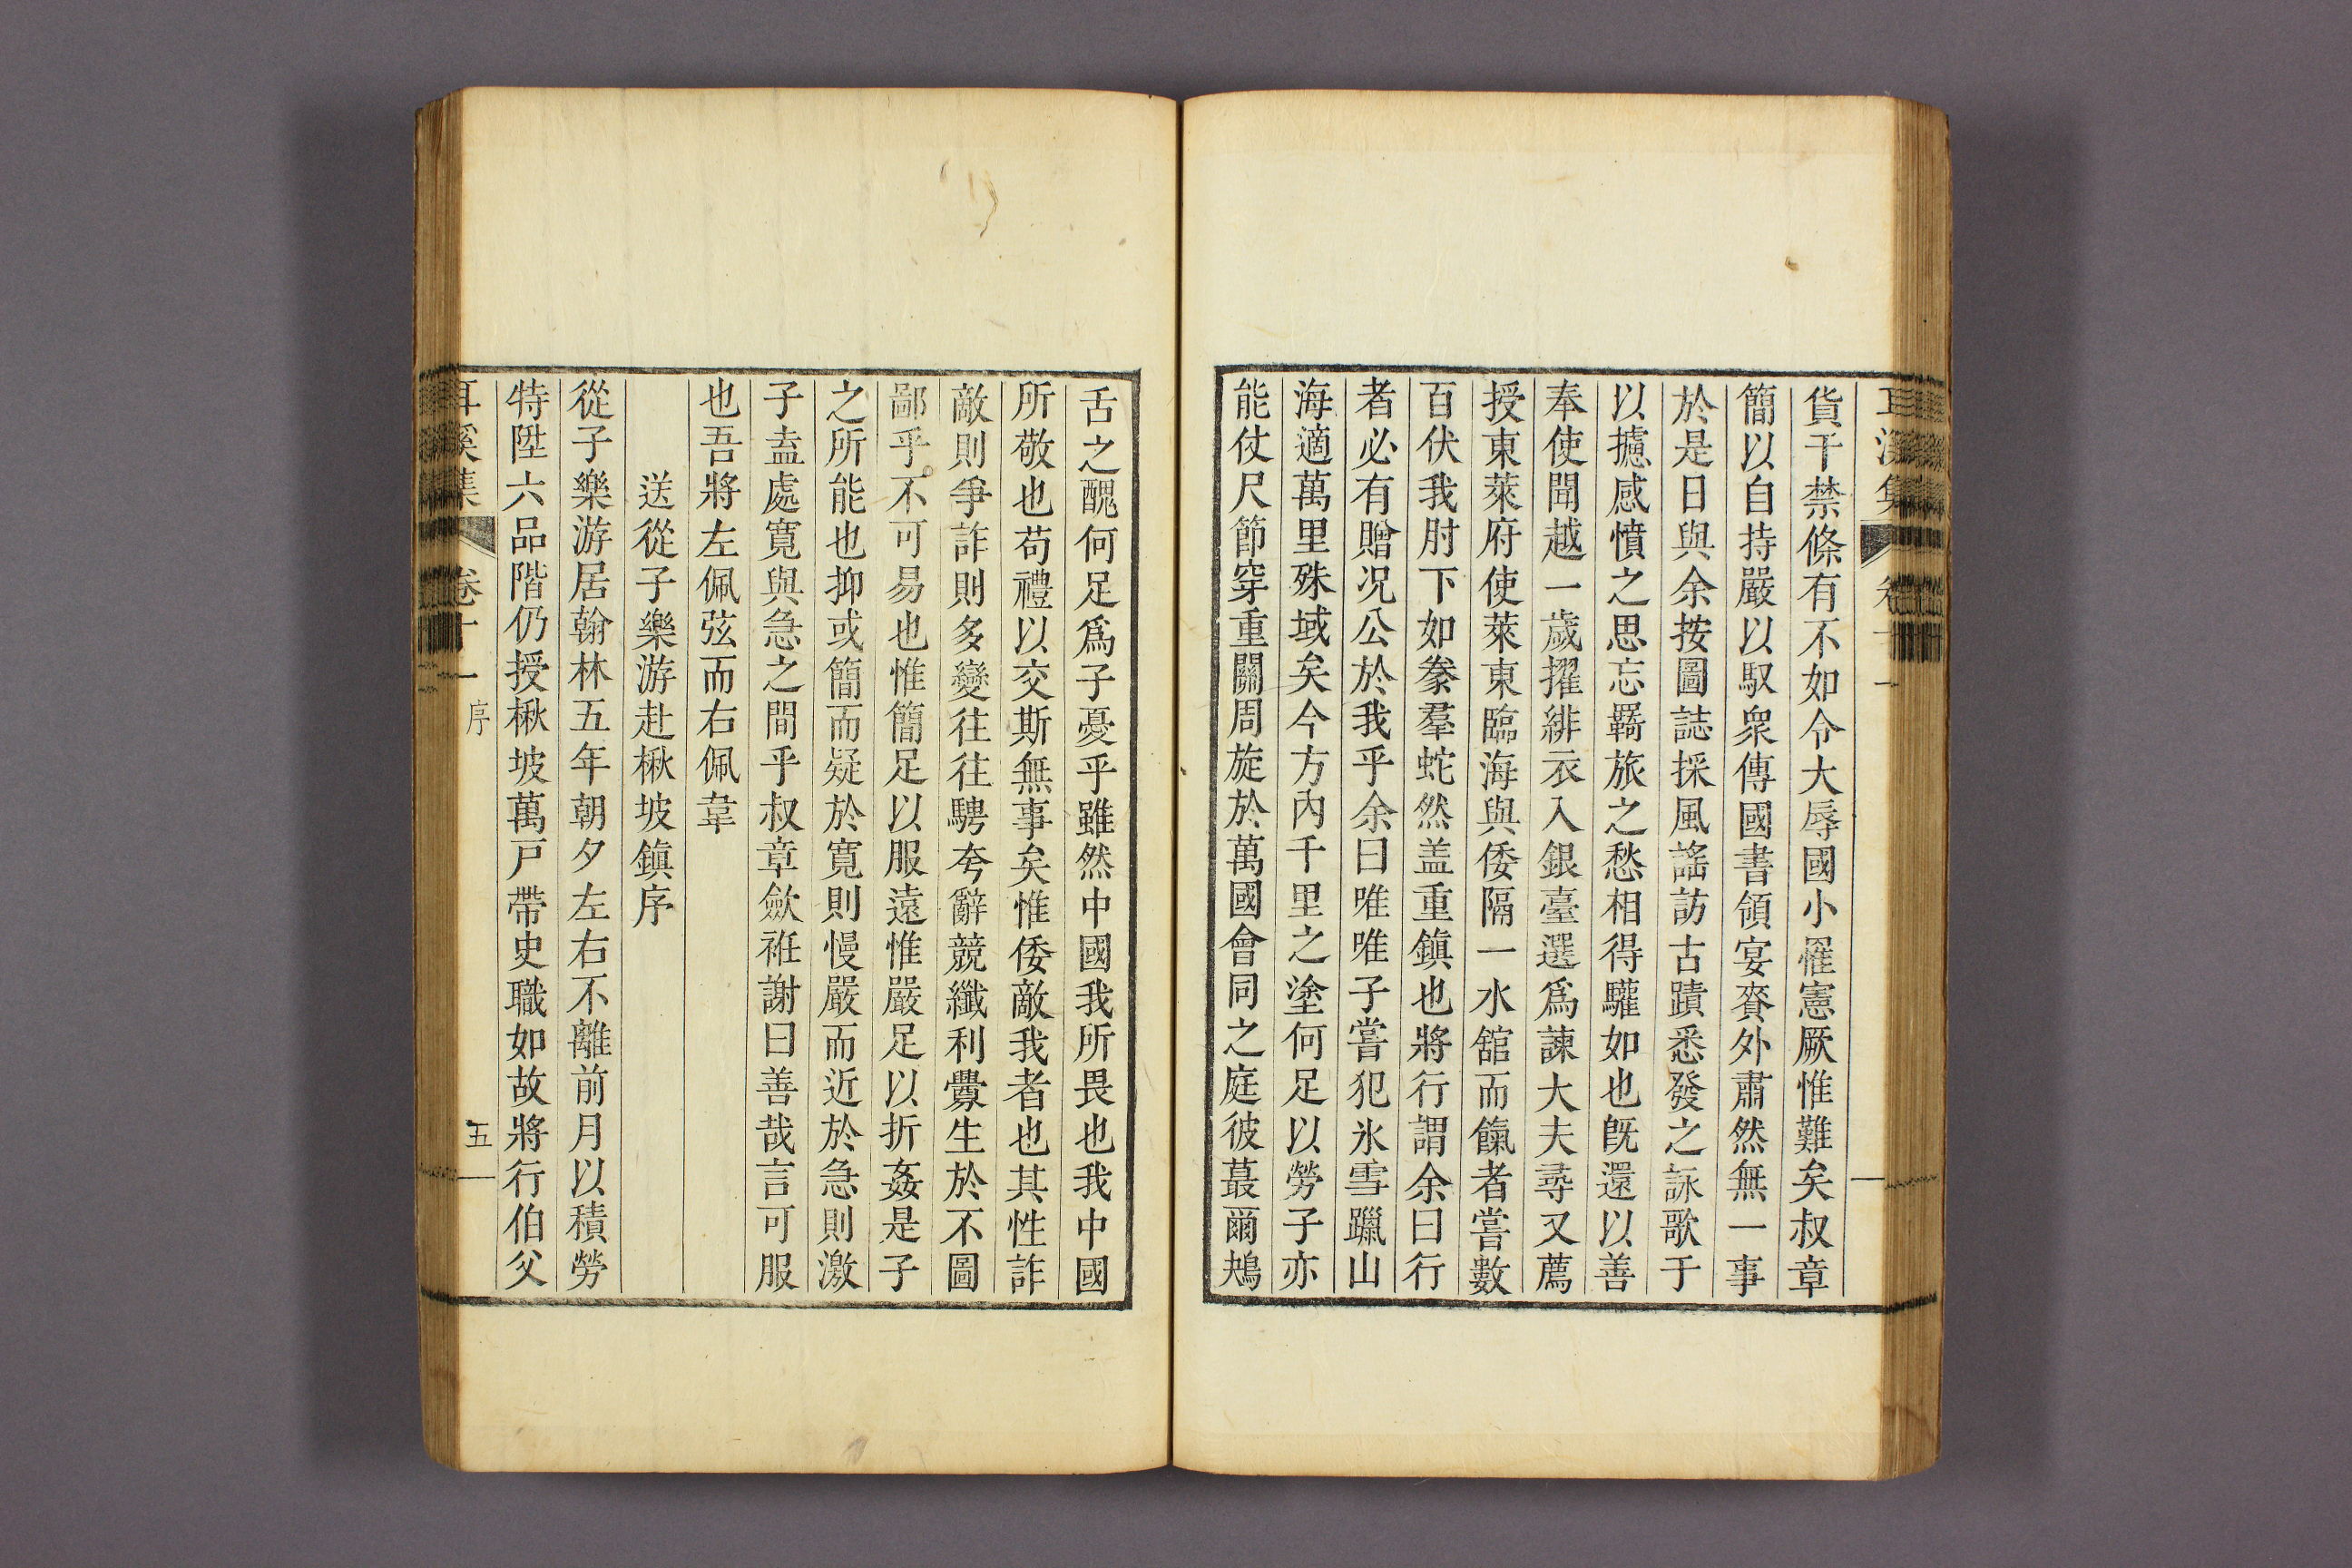 貨干禁條有不如令大辱國小罹憲厥惟難矣叔章
簡以自持嚴以馭衆傳國書領宴賚外肅然無一事
於是日與余按圖誌採風謠訪古蹟悉發之詠歌于
以攄感憤之思忘羇旅之愁相得驩如也旣還以善
奉使聞越一歲擢緋衣入銀臺選爲諫大夫尋又薦
授東萊府使萊東臨海與倭隔一水舘而餼者嘗數
百伏我肘下如豢羣蛇然盖重鎭也將行謂余曰行
者必有贈况公於我乎余曰唯唯子嘗犯氷雪躐山
海適萬里殊域矣今方內千里之塗何足以勞子亦
能仗尺節穿重關周旋於萬國會同之庭彼蕞爾鴂
舌之醜何足爲子憂乎雖然中國我所畏也我中國
所敬也苟禮以交斯無事矣惟倭敵我者也其性詐
敵則爭詐則多變往往騁夸辭競纖利釁生於不圖
鄙乎不可易也惟簡足以服遠惟嚴足以折姦是子
之所能也抑或簡而疑於寬則慢嚴而近於急則激
子盍處寬與急之間乎叔章歛袵謝曰善哉言可服
也吾將左佩弦而右佩韋
送從子樂游赴楸坡鎭序
從子樂游居翰林五年朝夕左右不離前月以積勞
特陞六品階仍授楸坡萬戶帶史職如故將行伯父
耳溪集 卷十一 序 五